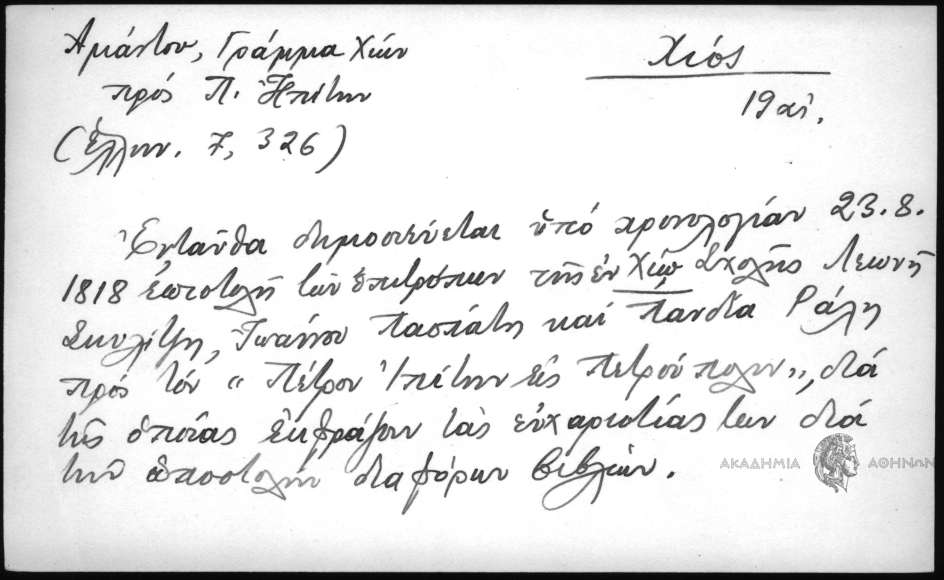 Ἀμάντου, Γράμμα Χίων
πρός Π. Ἠπίτην
(Ἑλλην. 7, 326)
Χιός
19 αἰ.
Ἐνταῦθα δημοσιεύεται ὑπό χρονολογίαν 23.8.
1818 ἐπιστολή τῶν ἐπιτρόπων τῆς ἐν Χίῳ Σχολῆς Λεωνῆ
Σκυλίτζη, Ἰωάννου Πασπάτη καί Παντιᾶ Ράλη
πρός τόν "Πέτρον Ἰπίτην εἰς Πετρούπολιν", διά
τῆς ὁποίας ἐκφράζουν τάς εὐχαριστίας των διά
τήν ἀποστολήν διαφόρων βιβλίων.
ΑΚΑΔΗΜΙΑ ΑΘΗΝΩΝ